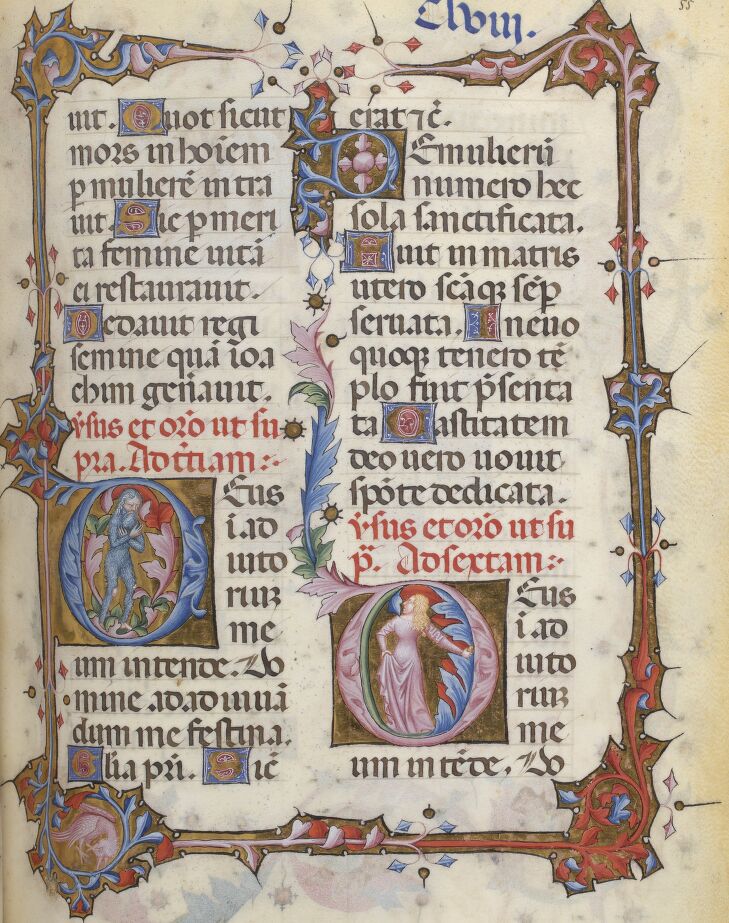 Clviii.
55
uit. Quot sicut
mors in hoīem
p mulierē intra
uit Sic p meri
ta femine uitā
ei restaurauit.
Dedauit regi
semine quā ioa
chim genauit.
v̄sus et orō ut su
pra. Ad t̄tiam :·
Deus
i. ad
iuto
rium
me
um intende. Do
mine ad ad iuuā
dum me festina.
Glia pri. Sic̄
erat ⁊c̄.
De mulierū
numero hec
sola sanctificata.
Fuit in matris
utero sc̄aqꝫ sēp
seruata. In euo
quoqꝫ tenero tē
plo fuit p̄senta
ta Castitatem
deo uero uouit
spōte dedicata.
v̄sus et orō ut su
p̄. Ad sextam :·
Deus
i. ad
iuto
rium
me
um intēde. Do